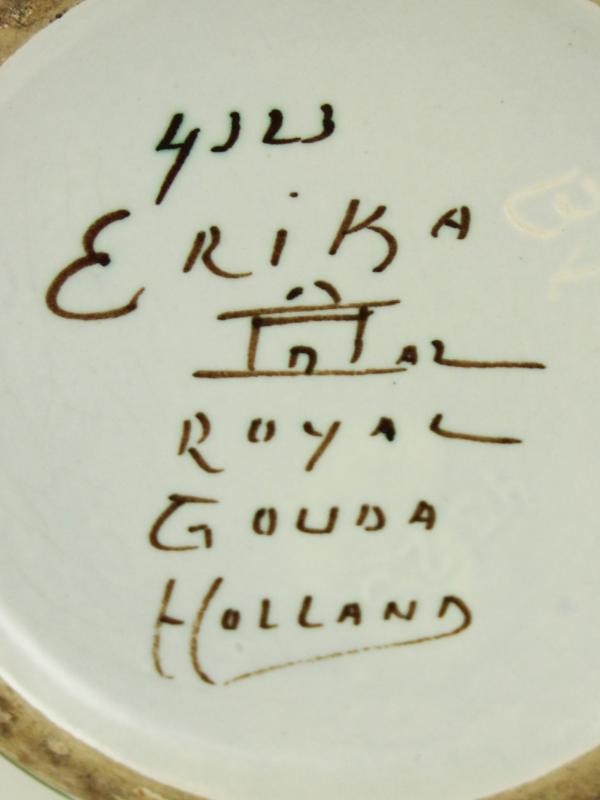 4323
ERiKA
ROYAL
GOUDA
HOLLAND